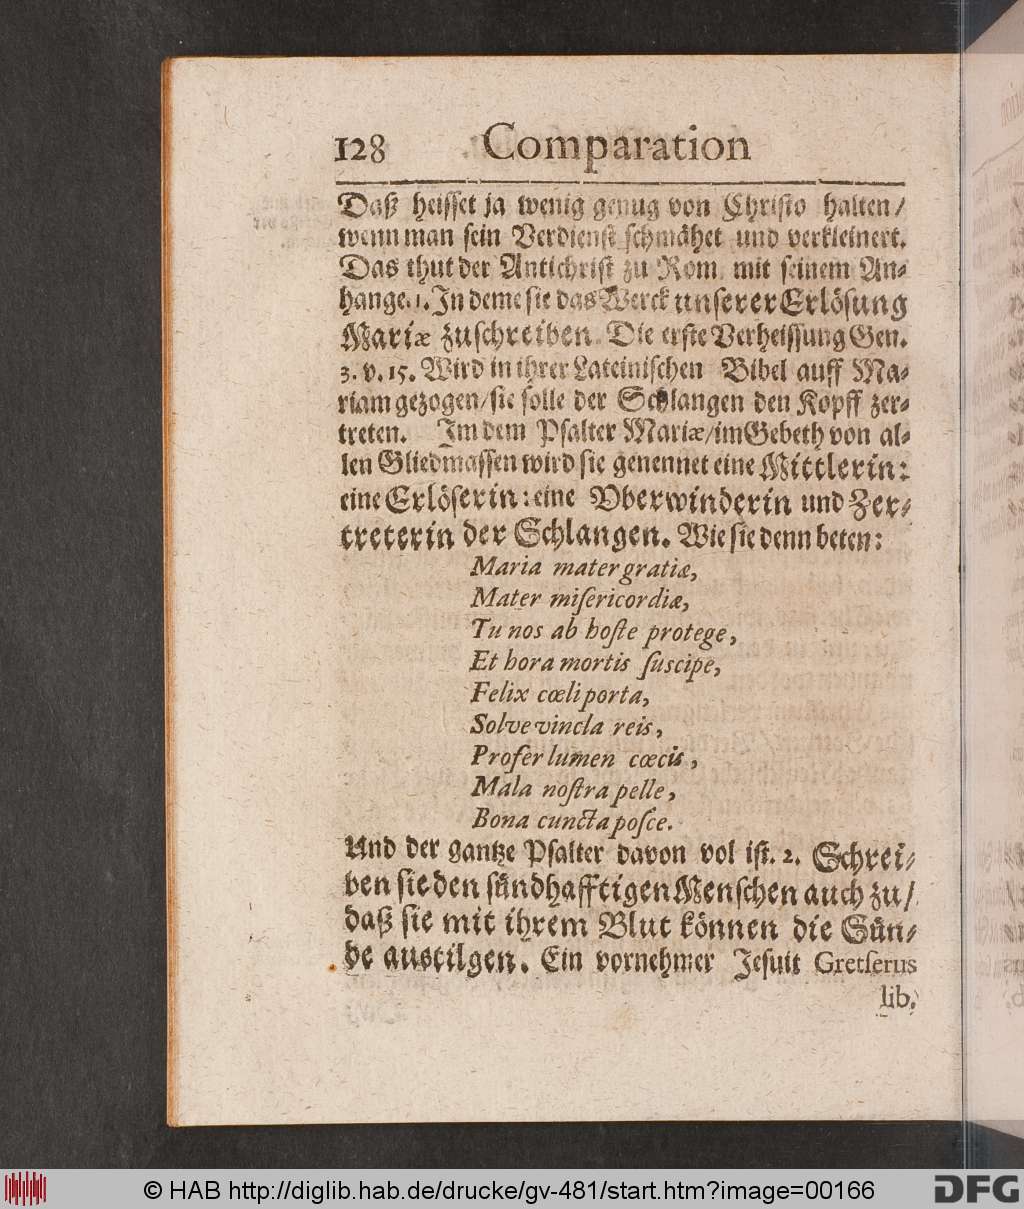 128 Comparation
Daß heisset ja wenig genug von Christo halten/
wenn man sein Verdienst schmähet und verkleinert.
Das thut der Antichrist zu Rom mit seinem An-
hange. 1. In deme sie das Werck unserer Erlösung
Mariæ zuschreiben. Die erste Verheissung Gen.
3. v. 15. Wird in ihrer Lateinischen Bibel auff Ma-
riam gezogen/sie solle der Schlangen den Kopff zer-
treten. Im dem Psalter Mariæ/im Gebeth von al-
len Gliedmassen wird sie genennet eine Mittlerin:
eine Erlöserin: eine Vberwinderin und Zer-
treterin der Schlangen. Wie sie denn beten:
Maria mater gratiæ,
Mater miſericordiæ,
Tu nos ab hoſte protege,
Et hora mortis ſuscipe,
Felix cœli porta,
Solve vincla reis,
Profer lumen cœcis,
Mala noſtra pelle,
Bona cuncta poſce.
Und der gantze Psalter davon vol ist. 2. Schrei-
ben sie den sündhafftigen Menschen auch zu/
daß sie mit ihrem Blut können die Sün-
de austilgen. Ein vornehmer Jesuit Gretſerus
lib.
© HAB http://diglib.hab.de/drucke/gv-481/start.htm?image=00166
DFG